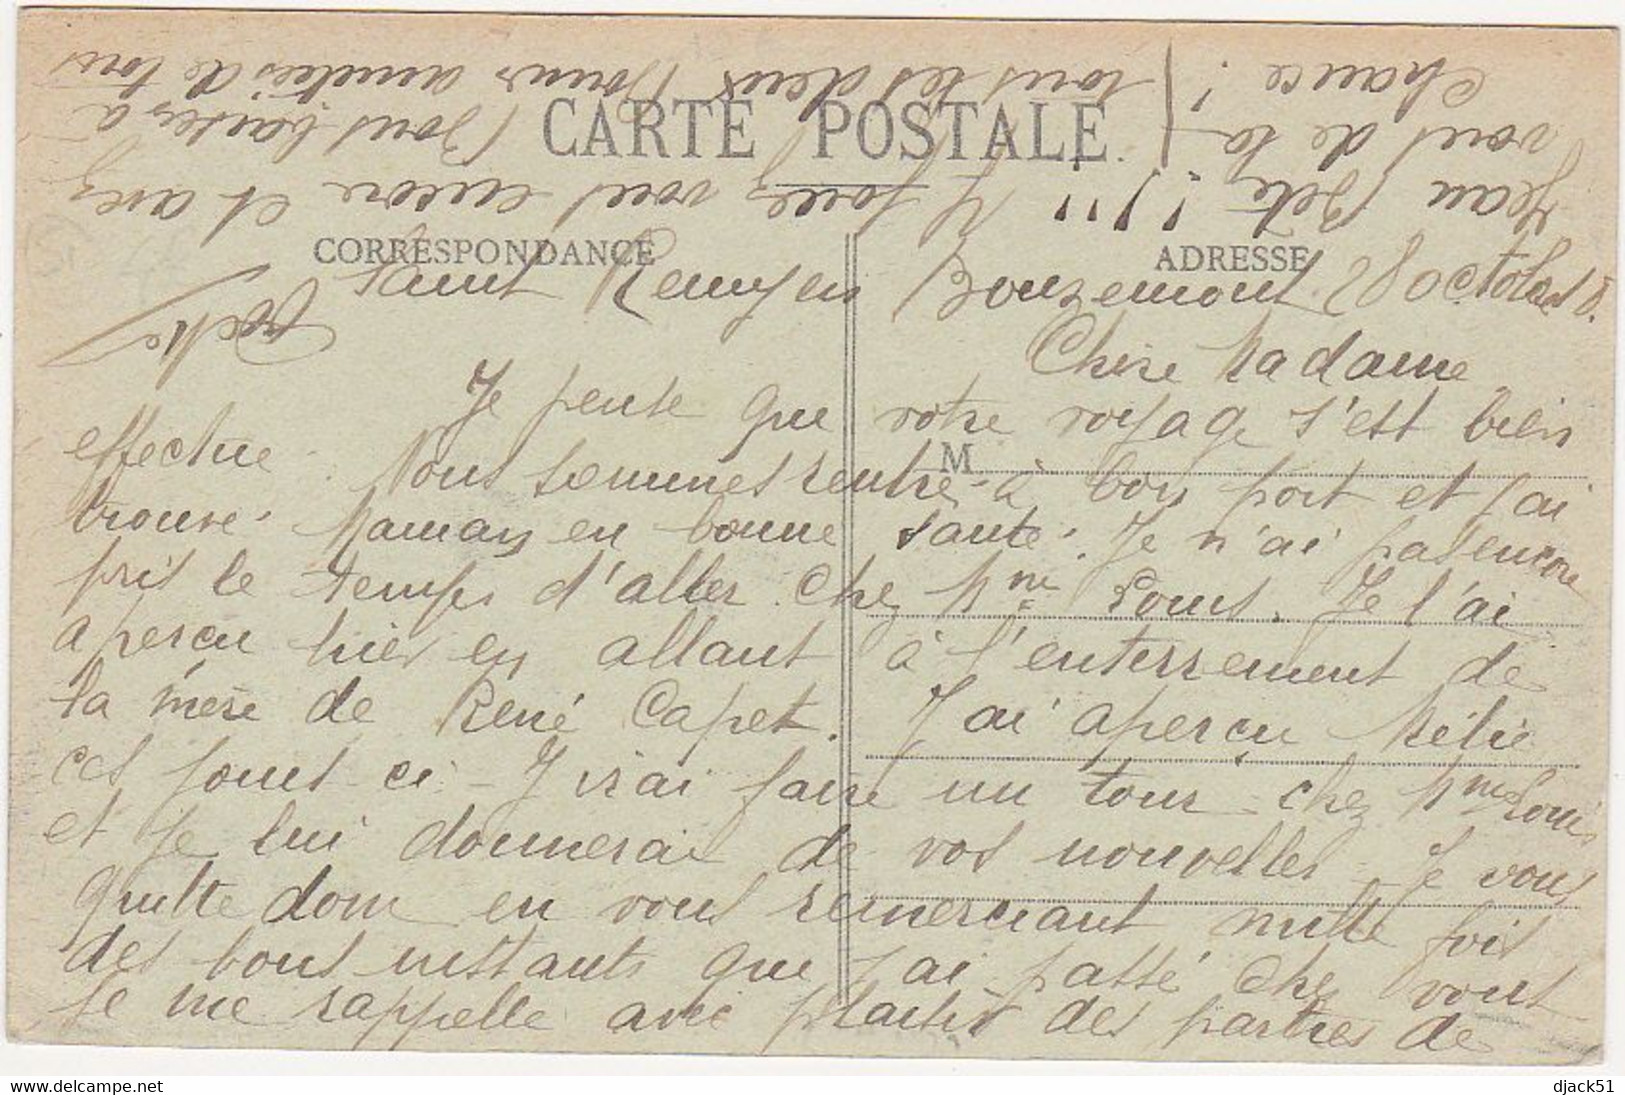 CARTE POSTALE
CORRESPONDANCE
ADRESSE
M
Saint Remy en Bouzemont 28 Octobre
Chère Madame
Je pense que votre voyage s'est bien
effectué. Nous sommes rentré à bon port et j'ai
trouvé Maman en bonne santé. Je n'ai pas encore
pris le temps d'aller chez Mme Louis. Je l'ai
aperçu hier en allant à l'enterrement de
la mère de René Capet. J'ai aperçu Mélie
ces jours-ci - J'irai faire un tour chez Mme Louis
et je lui donnerai de vos nouvelles - Je vous
quitte donc en vous remerciant mille fois
des bons instants que j'ai passé chez vous
Je me rappelle avec plaisir des parties de
Jean Bete !!!!! Y jouez vous encore et avez
vous de la chance !
Bons baisers à
tous les deux Bonnes amitiés de tous
djack51